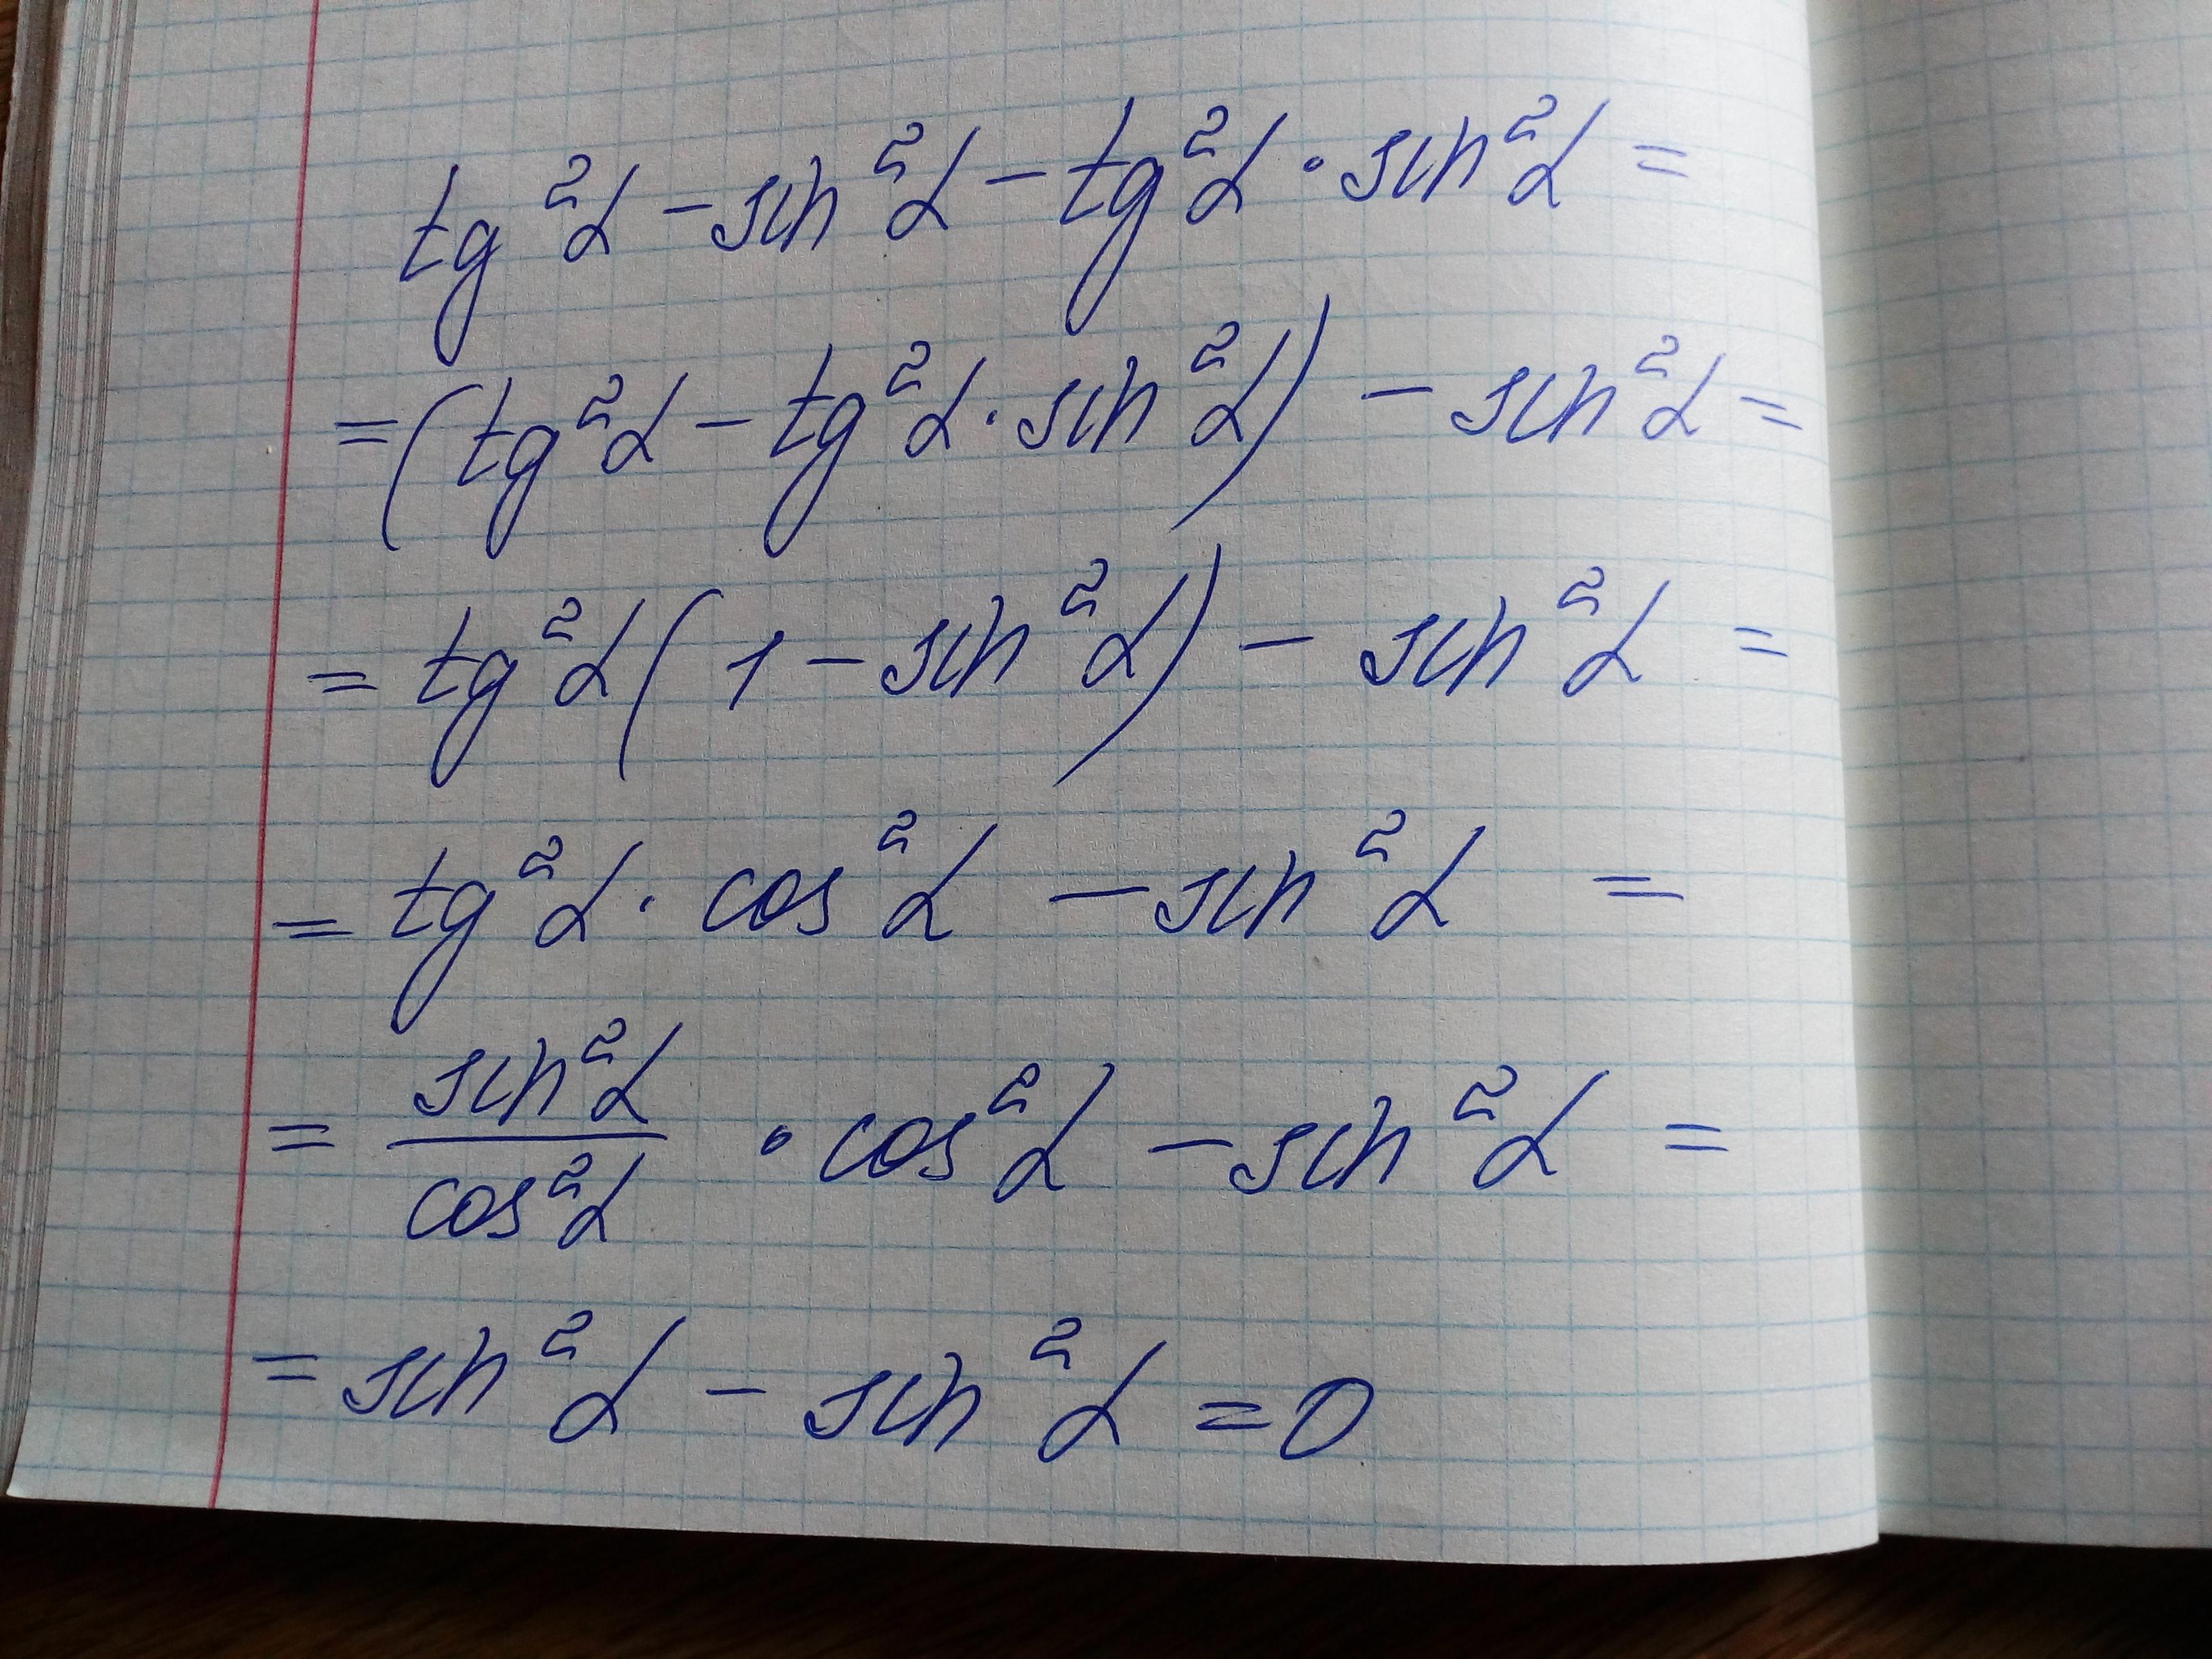 tg²α – sin²α – tg²α · sin²α =
= (tg²α – tg²α · sin²α) – sin²α =
= tg²α (1 – sin²α) – sin²α =
= tg²α · cos²α – sin²α =
= sin²α / cos²α · cos²α – sin²α =
= sin²α – sin²α = 0